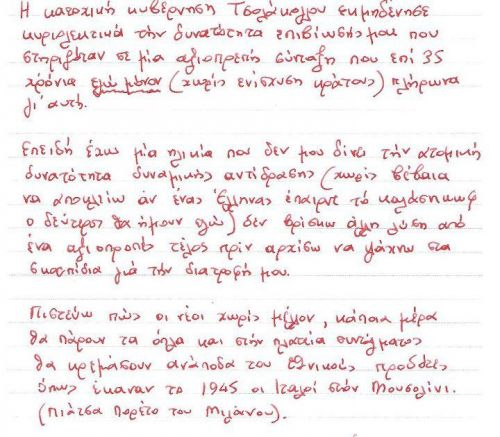 Η κατοχική κυβέρνηση Τσολάκογλου εκμηδένησε
κυριολεκτικά τήν δυνατότητα επιβίωσής μου που
στηριζόταν σε μία αξιοπρεπή σύνταξη που επί 35
χρόνια εγώ μόνον (χωρίς ενίσχυση κράτους) πλήρωνα
γι' αυτή.
Επειδή έχω μία ηλικία που δεν μου δίνει τήν ατομική
δυνατότητα δυναμικής αντίδρασης (χωρίς βέβαια
να αποκλείω άν ένας Έλληνας έπαιρνε τό καλάσνικωφ
ο δεύτερος θα ήμουν εγώ) δεν βρίσκω άλλη λύση από
ένα αξιοπρεπές τέλος πρίν αρχίσω να ψάχνω στα
σκουπίδια γιά τήν διατροφή μου.
Πιστεύω πώς οι νέοι χωρίς μέλλον, κάποια μέρα
θα πάρουν τα όπλα και στήν πλατεία συντάγματος
θα κρεμάσουν ανάποδα τους εθνικούς προδότες
όπως έκαναν το 1945 οι Ιταλοί στόν Μουσολίνι.
(Πιάτσα Πορέτο του Μιλάνου).